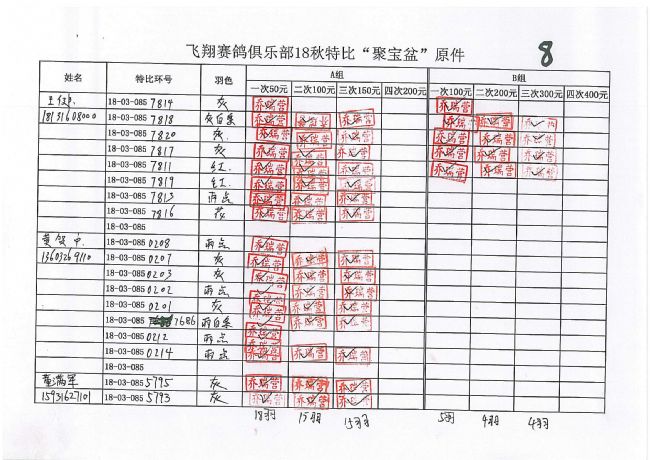 飞翔赛鸽俱乐部18秋特比“聚宝盆”原件 8
姓名 特比环号 羽色 A组 B组
一次50元 二次100元 三次150元 四次200元 一次100元 二次200元 三次300元 四次400元
18-03-085 7814 灰 乔瑞营 乔瑞营
18131608000 18-03-085 7818 灰白条 乔瑞营 乔瑞营 乔瑞营 乔瑞营
18-03-085 7820 灰 乔瑞营 乔瑞营 乔瑞营 乔瑞营 乔瑞营 乔瑞营
18-03-085 7817 灰 乔瑞营 乔瑞营 乔瑞营 乔瑞营 乔瑞营 乔瑞营
18-03-085 7811 红 乔瑞营 乔瑞营 乔瑞营 乔瑞营 乔瑞营 乔瑞营
18-03-085 7819 红 乔瑞营 乔瑞营 乔瑞营
18-03-085 7813 雨点 乔瑞营 乔瑞营 乔瑞营
18-03-085 7816 花 乔瑞营 乔瑞营 乔瑞营
18-03-085
18-03-085 0208 雨点 乔瑞营
13603269110 18-03-085 0207 灰 乔瑞营 乔瑞营 乔瑞营
18-03-085 0203 灰 乔瑞营 乔瑞营 乔瑞营
18-03-085 0202 雨点 乔瑞营 乔瑞营 乔瑞营
18-03-085 0201 灰 乔瑞营 乔瑞营 乔瑞营
18-03-085 7686 雨白条 乔瑞营 乔瑞营
18-03-085 0212 雨点 乔瑞营
18-03-085 0214 雨点 乔瑞营 乔瑞营 乔瑞营
18-03-085
董满军 18-03-085 5795 灰 乔瑞营 乔瑞营 乔瑞营
15931627101 18-03-085 5793 灰 乔瑞营 乔瑞营 乔瑞营
18羽 15羽 15羽 5羽 4羽 4羽